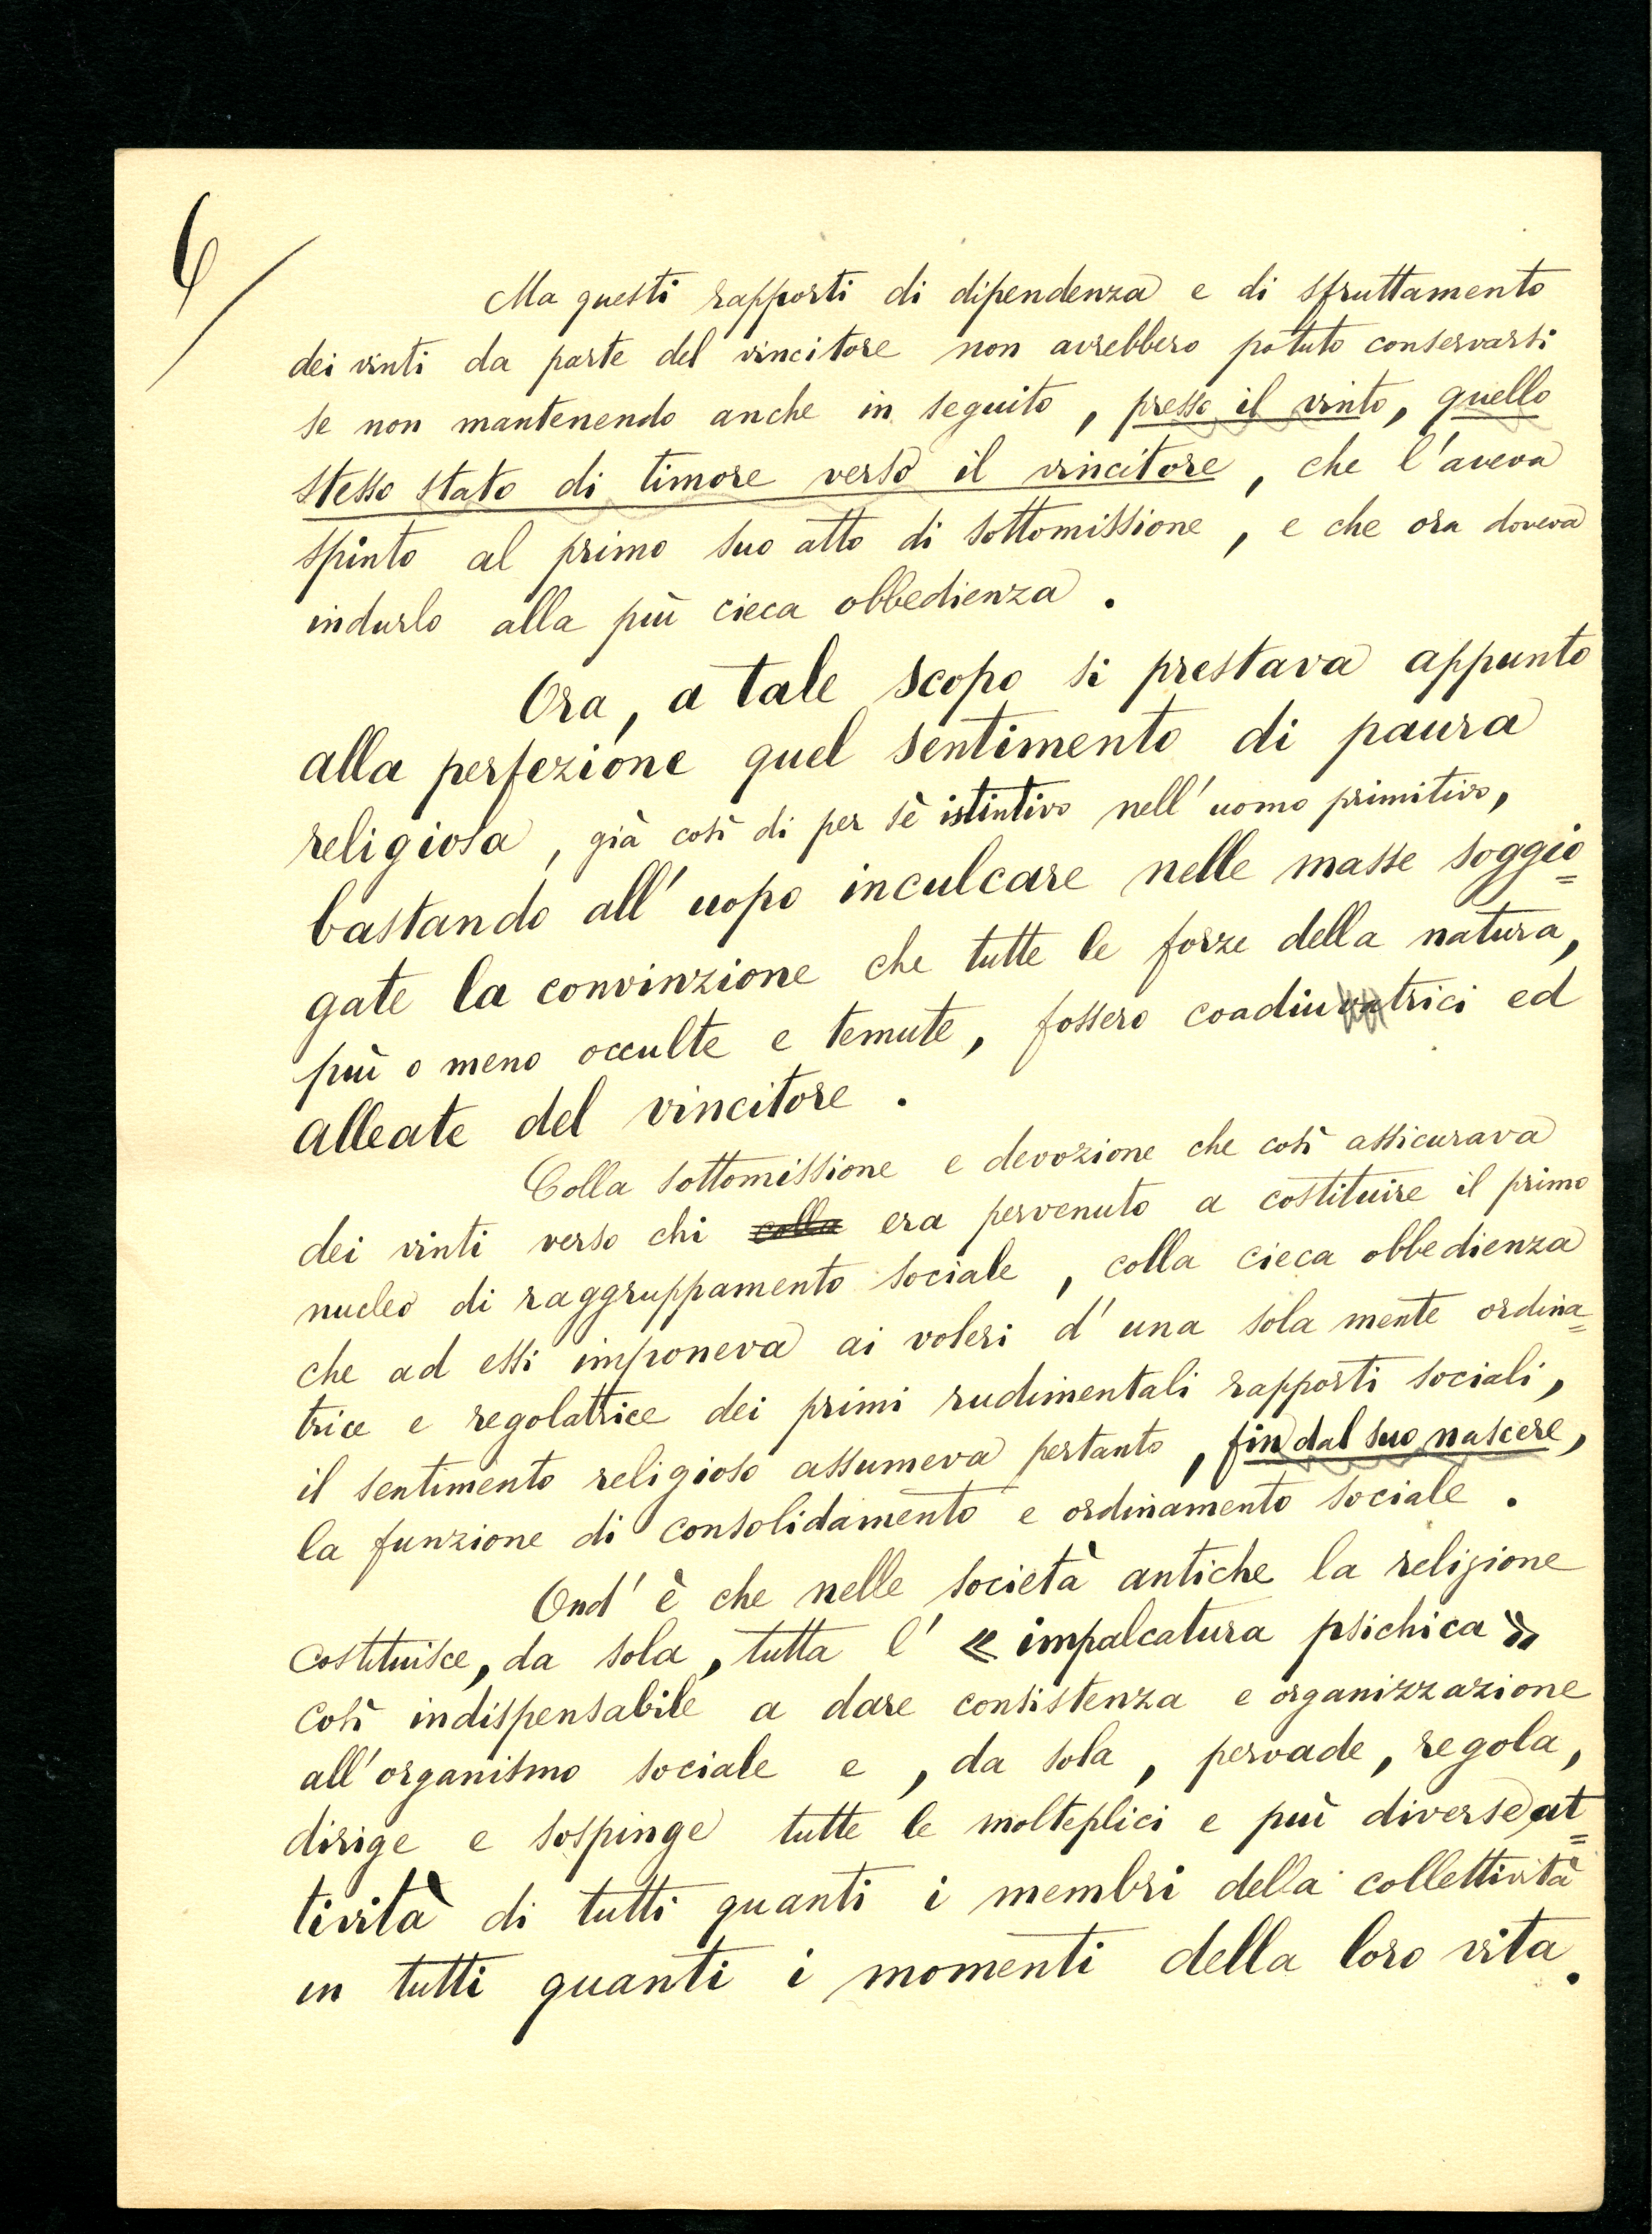 6/
Ma questi rapporti di dipendenza e di sfruttamento
dei vinti da parte del vincitore non avrebbero potuto conservarsi
se non mantenendo anche in seguito, presso il vinto, quello
stesso stato di timore verso il vincitore, che l'aveva
spinto al primo suo atto di sottomissione, e che ora doveva
indurlo alla più cieca obbedienza.
Ora, a tale scopo si prestava appunto
alla perfezione quel sentimento di paura
religiosa, già così di per sè istintivo nell'uomo primitivo,
bastando all'uopo inculcare nelle masse soggio=
gate la convinzione che tutte le forze della natura,
più o meno occulte e temute, fossero coadiuvatrici ed
alleate del vincitore.
Colla sottomissione e devozione che così assicurava
dei vinti verso chi colla era pervenuto a costituire il primo
nucleo di raggruppamento sociale, colla cieca obbedienza
che ad essi imponeva ai voleri d'una sola mente ordina=
trice e regolatrice dei primi rudimentali rapporti sociali,
il sentimento religioso assumeva pertanto, fin dal suo nascere,
la funzione di consolidamento e ordinamento sociale.
Ond'è che nelle società antiche la religione
costituisce, da sola, tutta l'«impalcatura psichica»
così indispensabile a dare consistenza e organizzazione
all'organismo sociale e, da sola, pervade, regola,
dirige e sospinge tutte le molteplici e più diverse at=
tività di tutti quanti i membri della collettività
in tutti quanti i momenti della loro vita.